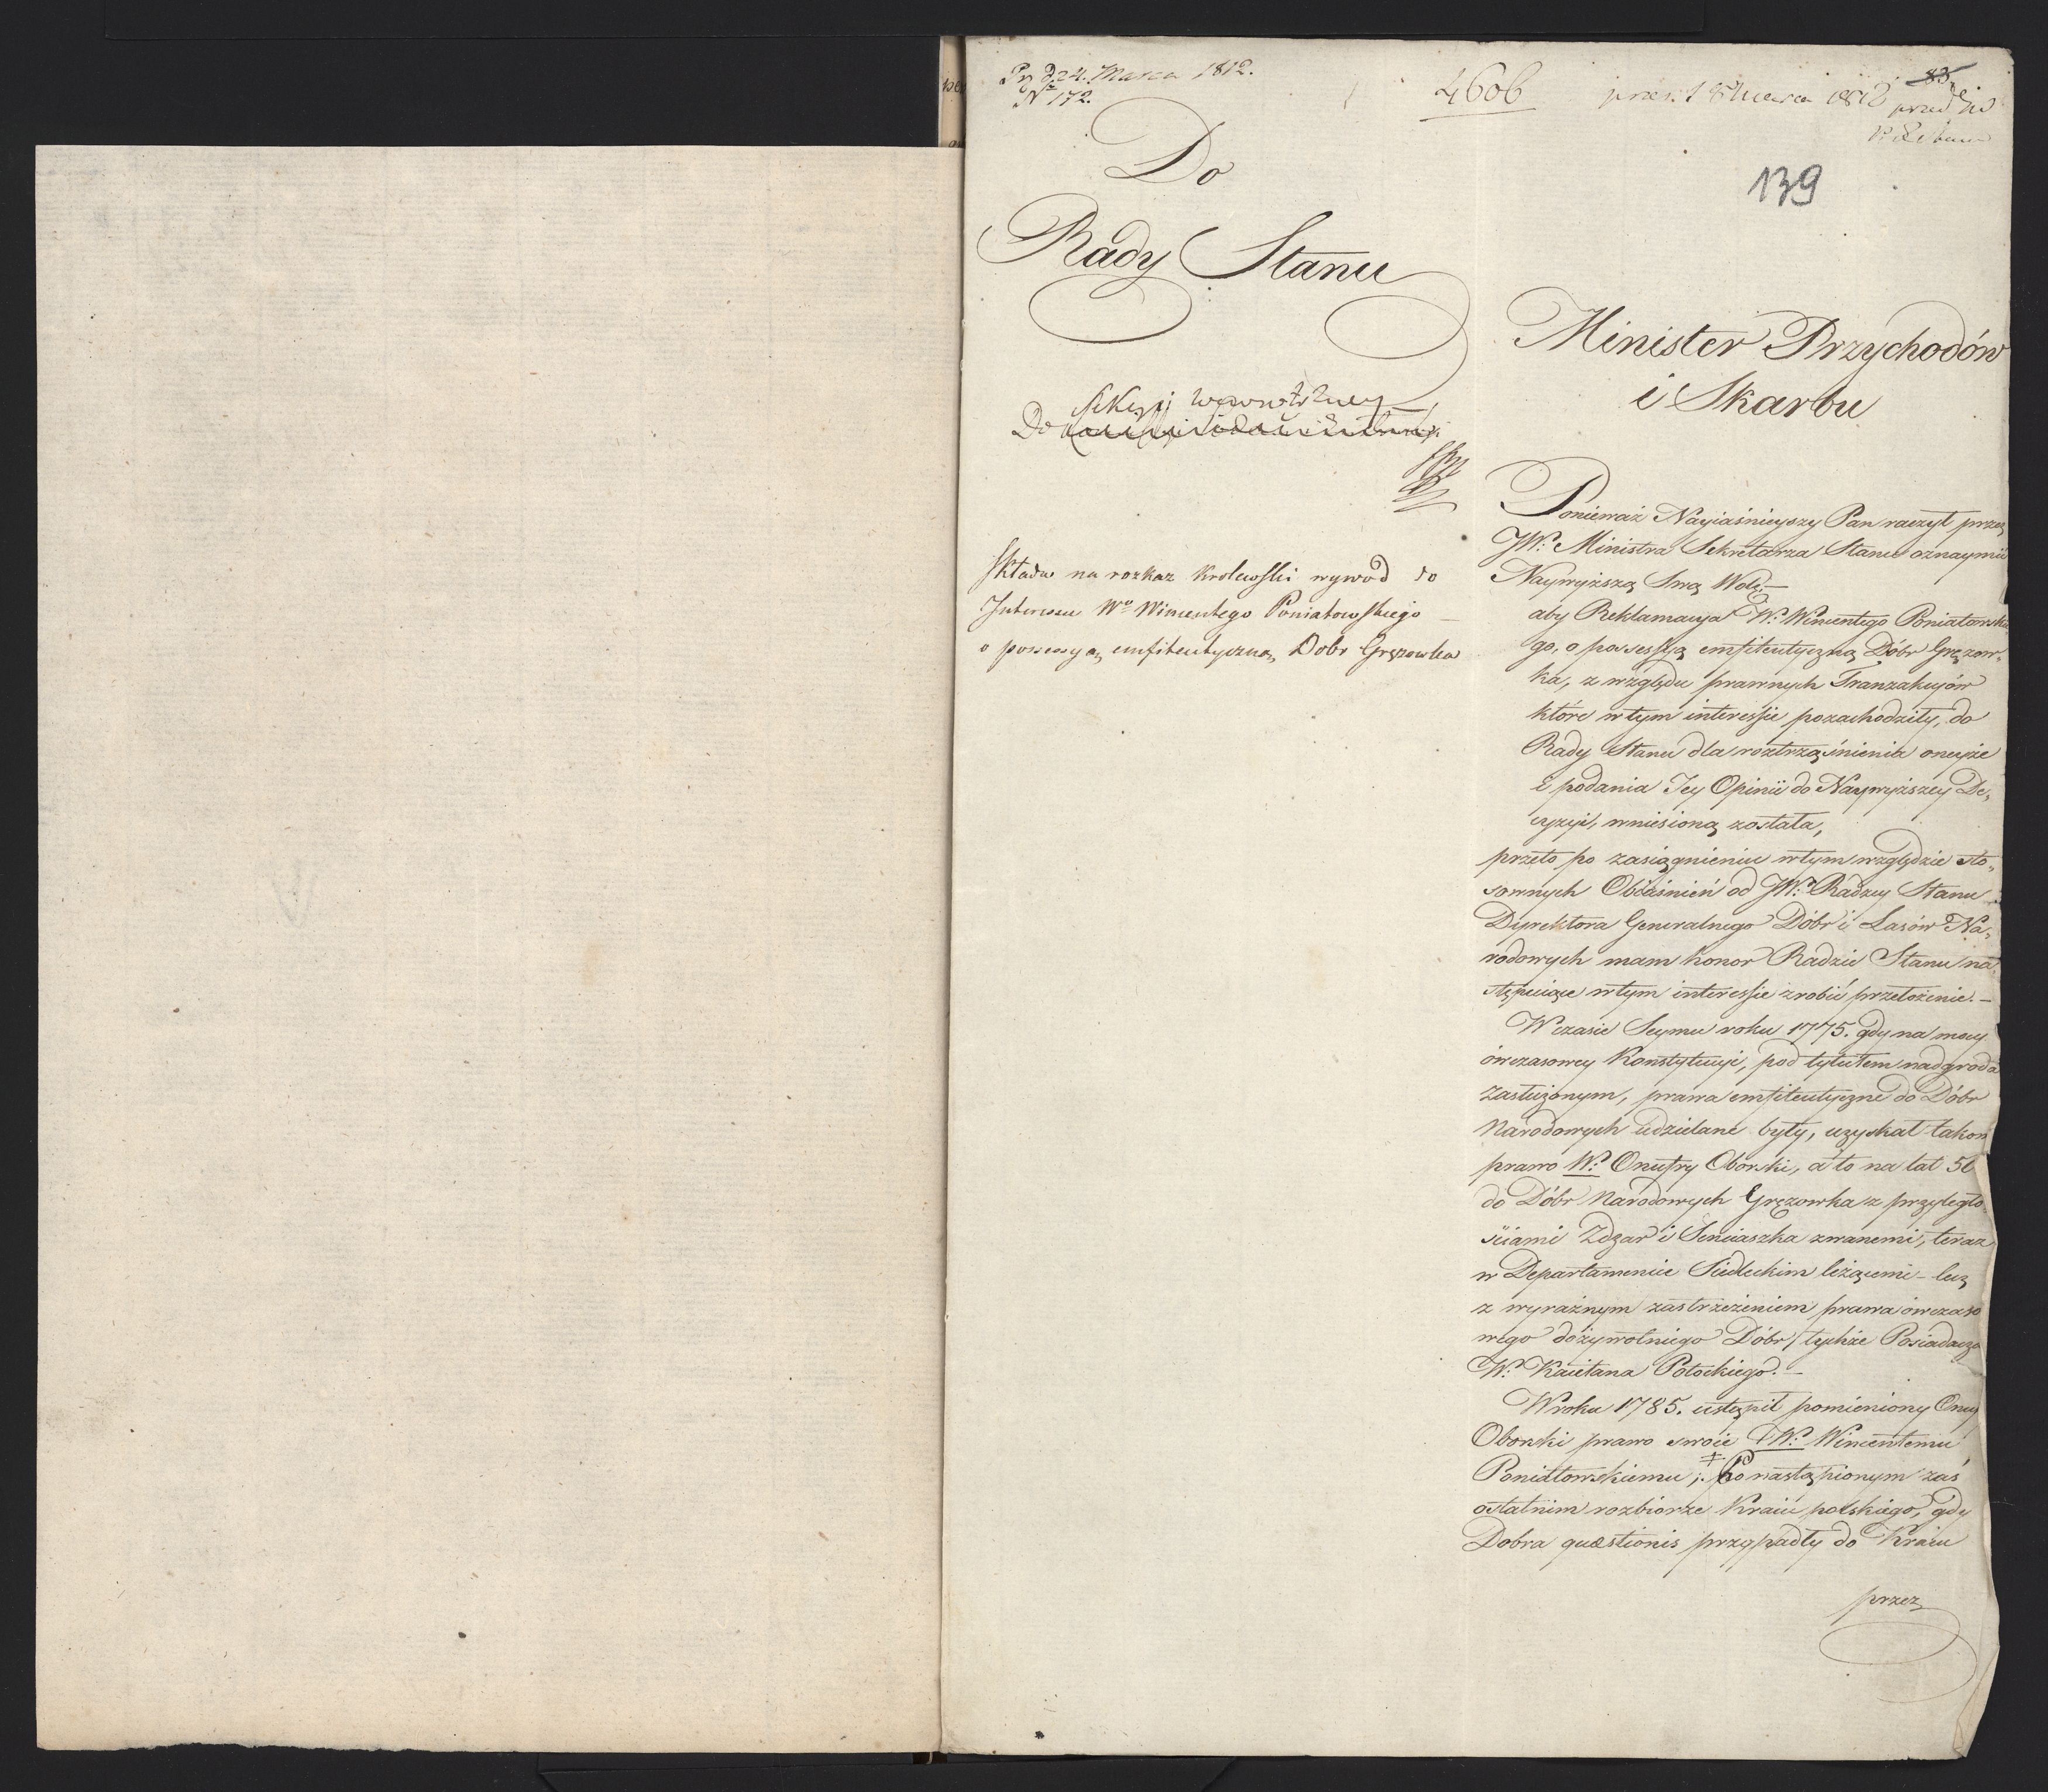 Pr. d. 24. Marca 1812.
N° 172.
4606
prez. 18 Marca 1812
83
139
Do
Rady Stanu
Sekcyi wewnętrzney
Do
Składa na rozkaz Krolewski wywod do
Interessu Wo Wincentego Poniatowskiego
o possessyą emfiteutyczną Dobr Gręzowka
Minister Przychodów
i Skarbu
Ponieważ Nayiaśnieyszy Pan raczył przez
JW: Ministra Sekretarza Stanu oznaymić
Naywyższą Swą Wolę; –
aby Reklamacya W: Wincentego Poniatowskie
go, o possessyą emfiteutyczną Dóbr Gręzow-
ka, z względu prawnych Tranzakcyów
które w tym interessie pozachodziły, do
Rady Stanu dla roztrząśnienia oneyże
i podania Jey Opinii do Naywyższey De-
cyzyi, wniesioną została,
przeto po zasiągnieniu w tym względzie sto-
sownych Obiaśnień od JW: Radzcy Stanu
Dyrektora Generalnego Dóbr i Lasów Na-
rodowych mam honor Radzie Stanu na-
stępuiące w tym interessie zrobić przełożenie. –
W czasie Seymu roku 1775. gdy na mocy
ówczasowey Konstytucyi, pod tytułem nadgroda
Zasłużonym, prawa emfiteutyczne do Dóbr
Narodowych udzielane były, uzyskał takow
prawo W: Onufry Oborski, a to na lat 50
do Dóbr Narodowych Gręzowka z przyległo-
ściami Zdżar i Sieniaszka zwanemi, teraz
w Departamencie Siedleckim leżącemi – lecz
z wyraźnym zastrzeżeniem prawa ówczaso
wego dożywotniego Dóbr tychże Posiadacza
W: Kaietana Potockiego. –
W roku 1785. ustąpił pomieniony Onuf
Oborski prawo swoie W: Wincentemu
Poniatowskiemu; Po nastąpionym zaś
ostatnim rozbiorze Kraiu polskiego, gdy
Dobra quæstionis przypadły do Kraiu
przez